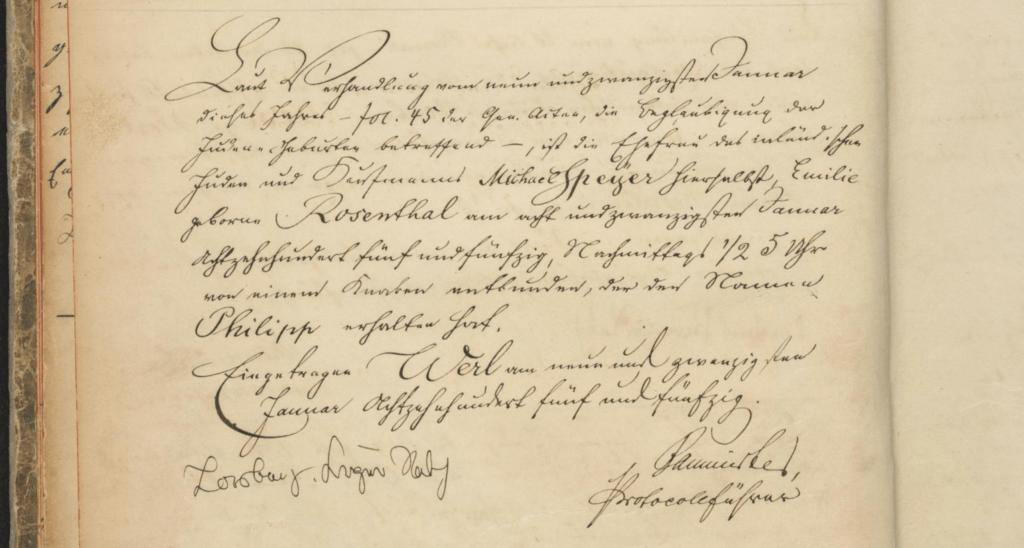 Laut Verhandlung vom neun und zwanzigsten Januar
dieses Jahres – fol. 45 der Gen. Acten, die Beglaubigung der
Juden-Geburten betreffend –, ist die Ehefrau des inländischen
Juden und Kaufmanns Michael Speyer hierselbst, Emilie
geborne Rosenthal am acht und zwanzigsten Januar
Achtzehnhundert fünf und fünfzig, Nachmittags 1/2 5 Uhr
von einem Knaben entbunden, der den Namen
Philipp erhalten hat.
Eingetragen Werl am neun und zwanzigsten
Januar Achtzehnhundert fünf und fünfzig.
Protocollführer